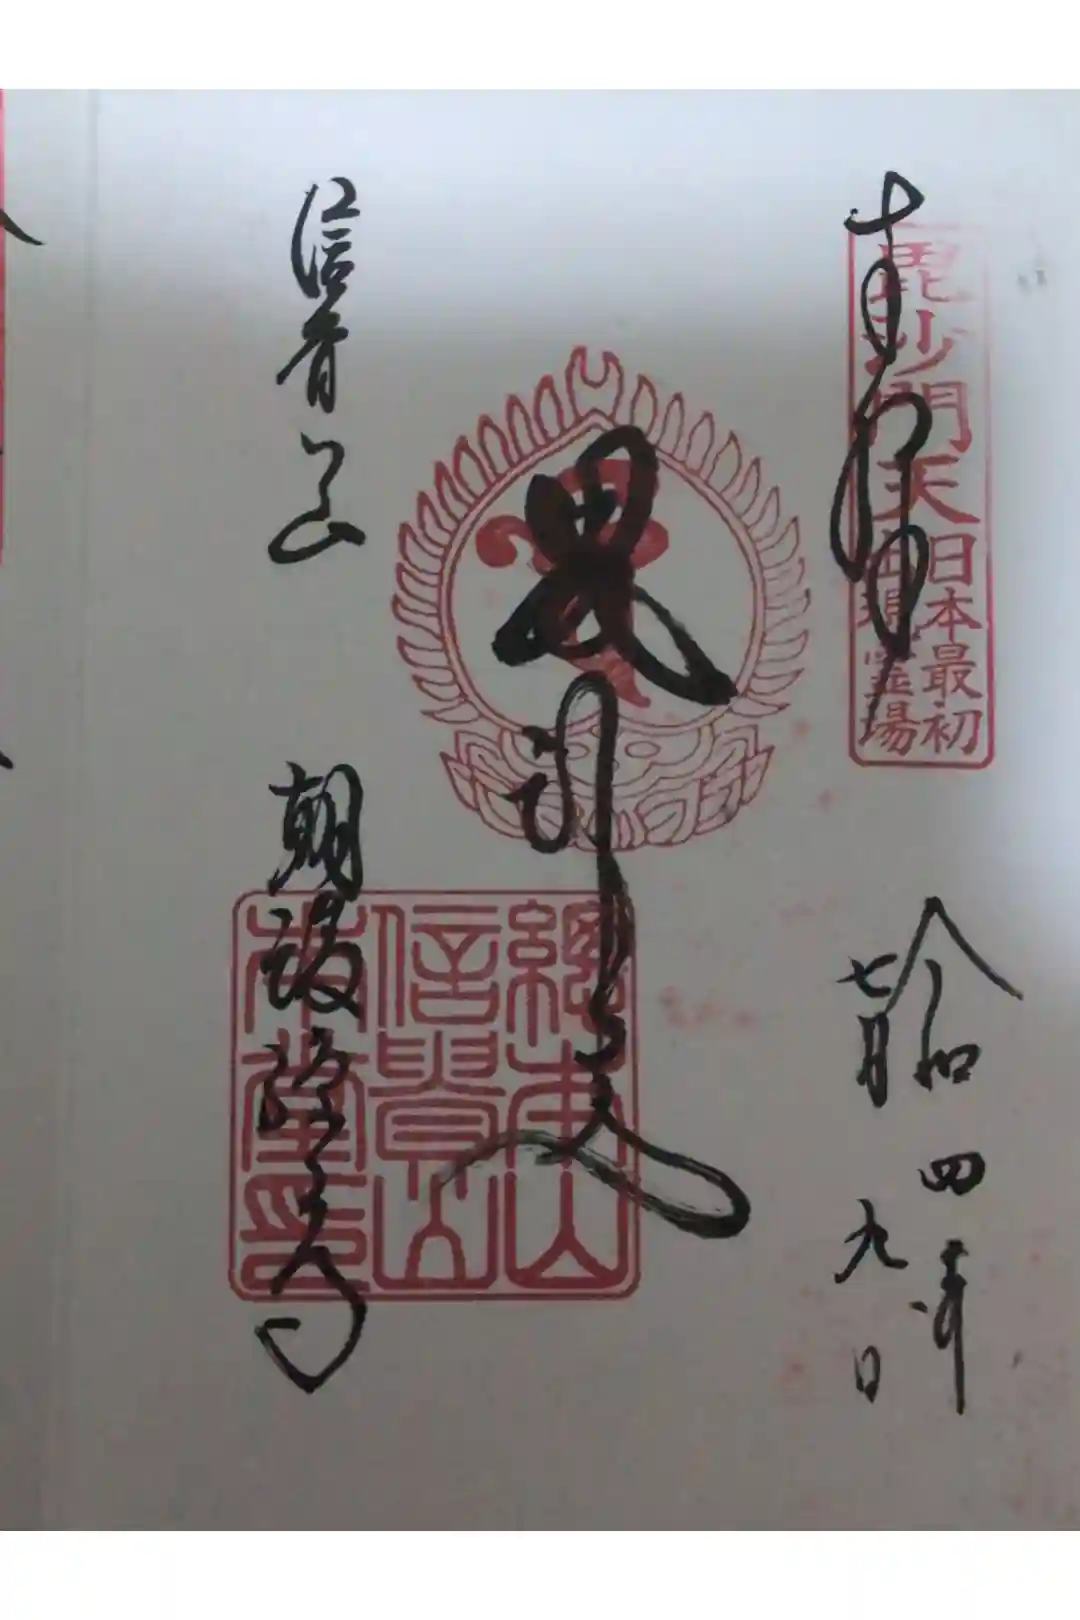 奉拝
毘沙門天
日本最初
出現霊場
令和四年
七月九日
毘沙門天
總本山
信貴山
本堂印
信貴山 朝護孫子寺